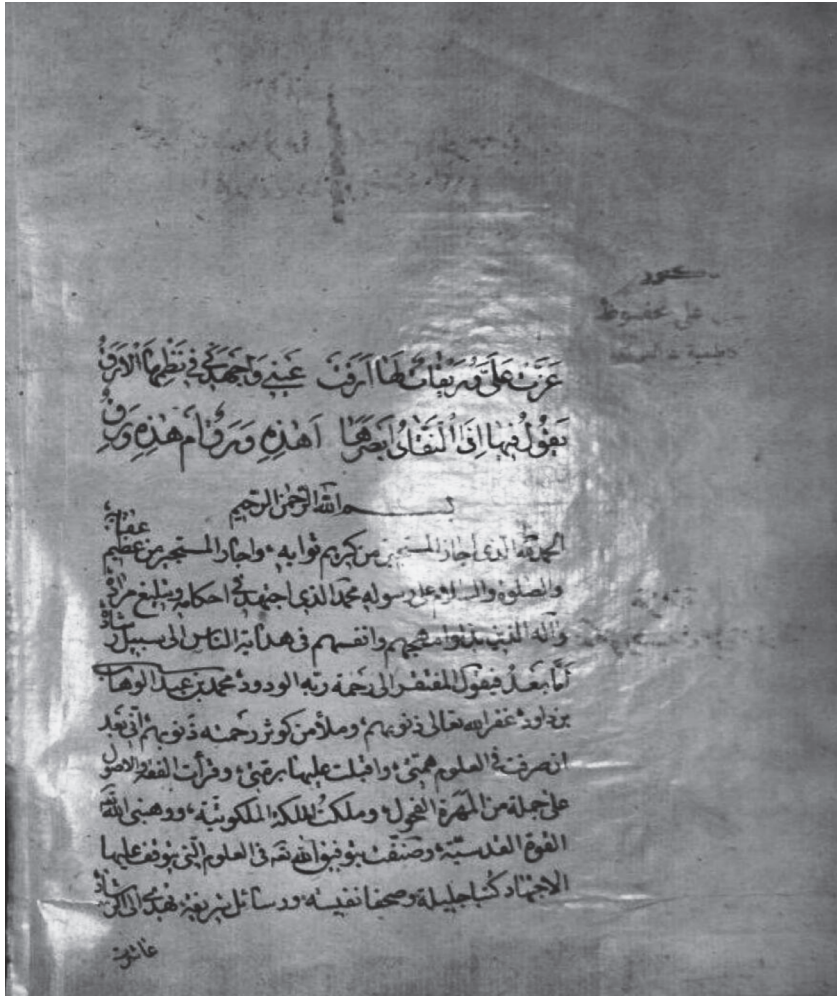 دكتور
علي محفوظ
عَزَّتْ عَلَيَّ وُرَيْقَاتٌ لَهَا أَرِقَتْ عَيْنِي وَأَجْهَدَنِي فِي نَظْمِهَا الأَرَقُ
يَقُولُ فِيهَا إِذَا النَّقَّادُ أَبْصَرَهَا أَهْذِهِ وَرَقٌ أَمْ هذِهِ وَرِقُ
بسم الله الرحمن الرحيم
الحمد لله الذي اجاز المستجيز من كريم ثوابه، واجار المستجير من عظيم عقابه
والصلوة والسلام على رسوله محمد الذي اجتهد في احكامه وتبليغ مراده
وآله الذين بذلوا مهجهم وانفسهم في هداية الناس الى سبيل رشاده
أمّا بعد فيقول المفتقر الى رحمة ربّه الودود محمد بن عبد الوهاب
بن داود غفر الله تعالى ذنوبهم، وملأ من كوثر رحمته ذنوبهم اني بعد
ان صرفت في العلوم همتي، واقبلت عليها برمتي، وقرأت الفقه والاصول
على جملة من المهرة الفحول، وملكت الملكة الملكوتيّة، ووهبني الله
القوة القدسيّة، وصنّفت بتوفيق الله تع في العلوم التي يتوقف عليها
الاجتهاد كتبا جليلة وصحفا نفيسة، ورسائل شريفة، تهدي الى الرشاد